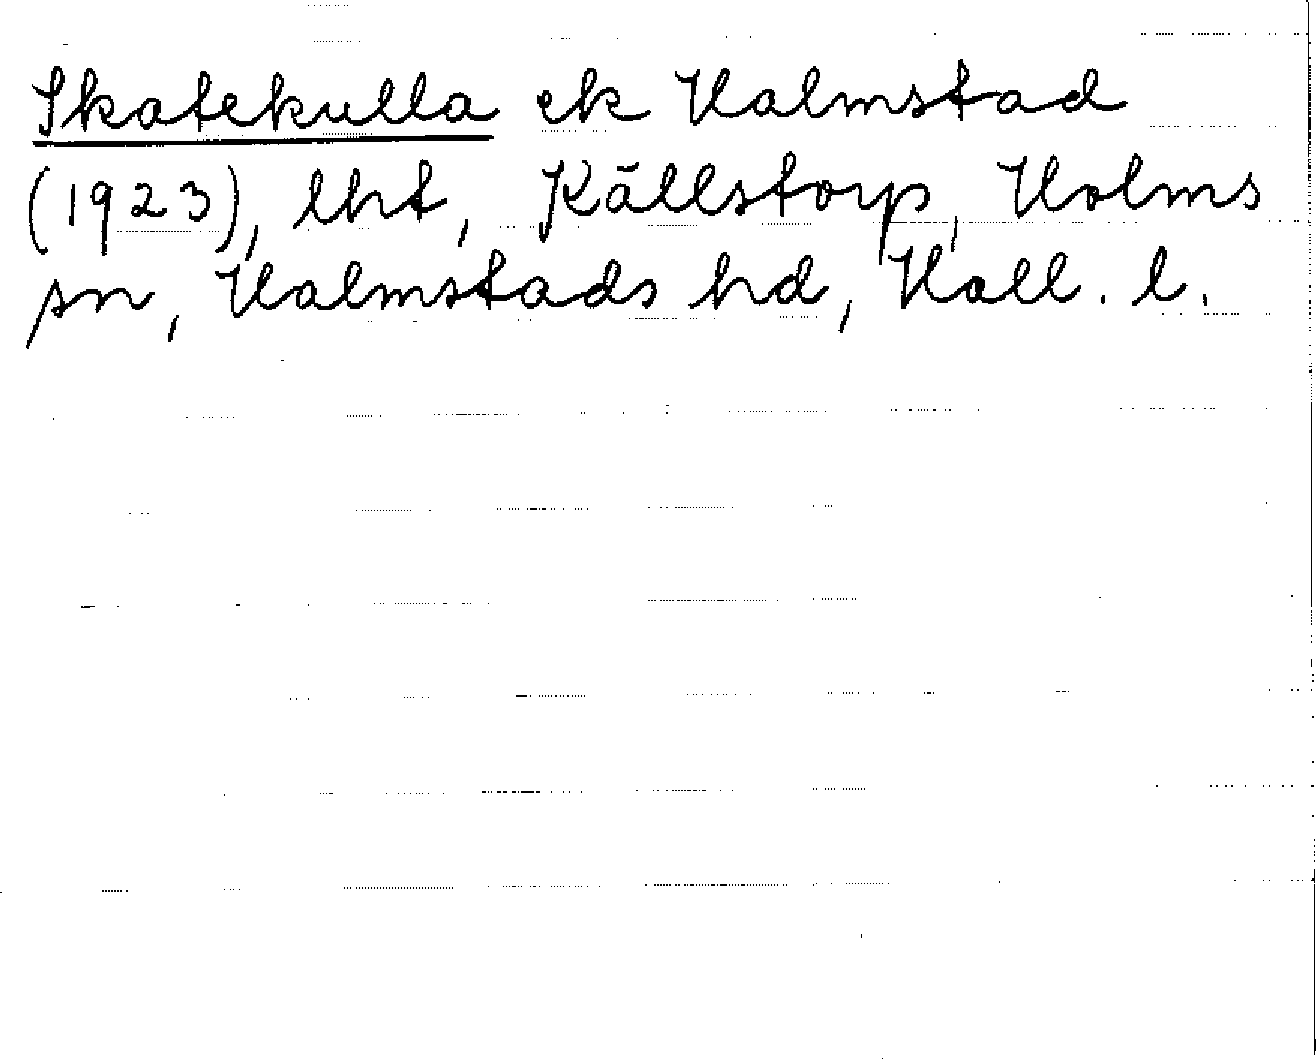 Skatekulla ek Halmstad
(1923), lht, Källstorp, Holms
sn, Halmstads hd, Hall. l.